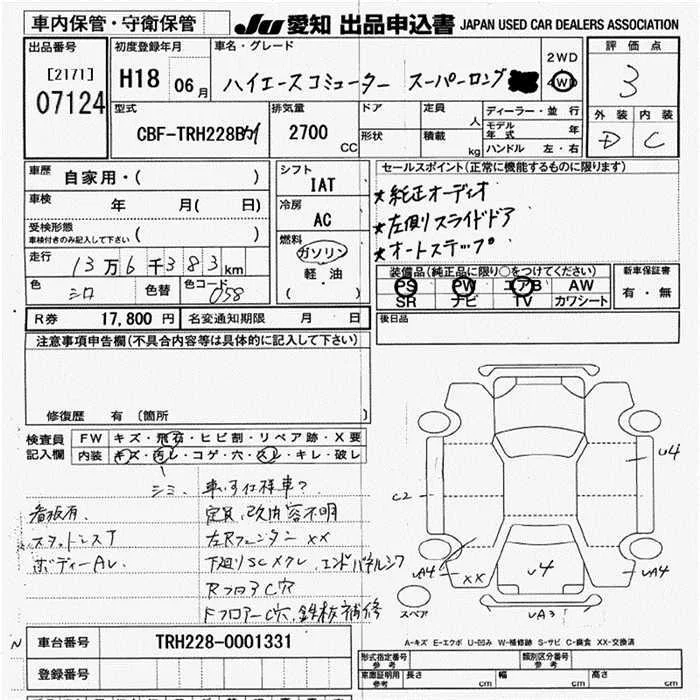 車内保管・守衛保管
JU 愛知 出品申込書 JAPAN USED CAR DEALERS ASSOCIATION
出品番号
[2171]
07124
初度登録年月
H18 06月
車名・グレード
ハイエースコミューター スーパーロング
2WD
4WD
評価点
3
外装 内装
D C
型式
CBF-TRH228B
排気量
2700
CC
ドア
形状
定員
人
積載
kg
ディーラー・並行
モデル年式 年
ハンドル 左・右
車歴
自家用・( )
車検 年 月( 日)
受検形態
車検付きのみ記入して下さい ( )
走行 13万6千383km
色 シロ 色替 色コード 058
シフト
IAT
冷房
AC
燃料
ガソリン
軽・油
( )
セールスポイント(正常に機能するものに限ります)
★純正オーディオ
★左側スライドドア
★オートステップ
装備品(純正品に限り○をつけてください)
PS PW エアB AW
SR ナビ TV カワシート
新車保証書
有・無
R券 17,800円 名変通知期限 月 日
後日品
注意事項申告欄(不具合内容等は具体的に記入して下さい)
修復歴 有 (箇所 )
検査員記入欄
FW キズ・飛石・ヒビ割・リペア跡・X要
内装 キズ・汚レ・コゲ・穴・スレ・キレ・破レ
シミ 車いす仕様車?
看板有 定員、改内容不明
スタットレスT 左Rフェンダー XX
ボディーAレ 下廻りSCメクレ、エンドパネルシワ
RフロアC穴
FフロアーC穴、鉄板補修
U4
C2
UA4
XX
U4
UA4
UA3
スペア
A-キズ E-エクボ U-凹み W-補修跡 S-サビ C-腐食 XX-交換済
N
車台番号 TRH228-0001331
登録番号
形式指定番号
参考
類別区分番号
参考
車庫証明用
参考
長さ cm 幅 cm 高さ cm